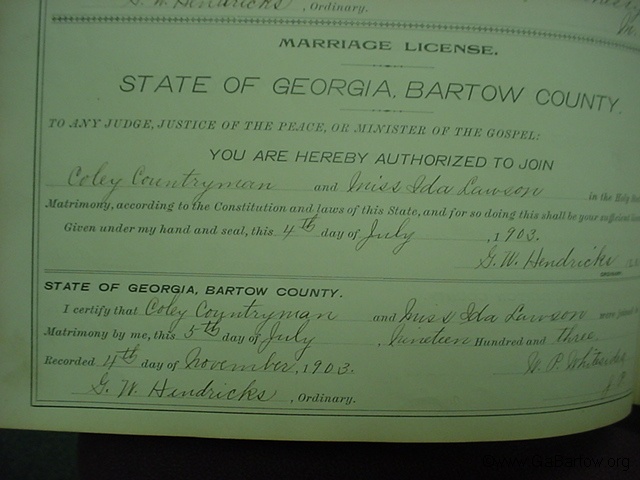 G. W. Hendricks, Ordinary.
MARRIAGE LICENSE.
STATE OF GEORGIA, BARTOW COUNTY.
TO ANY JUDGE, JUSTICE OF THE PEACE, OR MINISTER OF THE GOSPEL:
YOU ARE HEREBY AUTHORIZED TO JOIN
Coley Countryman and Miss Ida Lawson in the Holy
Matrimony, according to the Constitution and laws of this State, and for so doing this shall be your sufficient
Given under my hand and seal, this 4th day of July, 1903.
G. W. Hendricks
ORDINARY
STATE OF GEORGIA, BARTOW COUNTY.
I certify that Coley Countryman and Miss Ida Lawson were
Matrimony by me, this 5th day of July, Nineteen Hundred and three
Recorded 4th day of November, 1903. W. P.
G. W. Hendricks, Ordinary. J. P.
©www.GaBartow.org